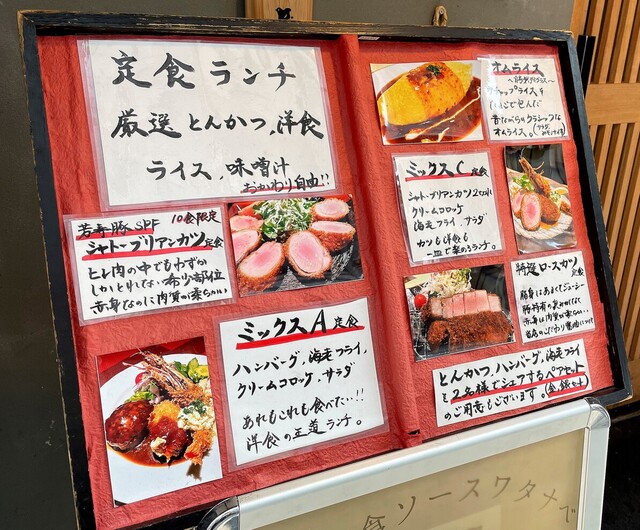 定食ランチ
厳選とんかつ,洋食
ライス,味噌汁
おかわり自由!!
芳寿豚SPF 10食限定
シャトーブリアンカツ定食
ヒレ肉の中でもわずか
しかとれない希少部位
赤身なのに肉質が柔らかい
ミックスA定食
ハンバーグ,海老フライ,
クリームコロッケ,サラダ
あれもこれも食べたい…!!
洋食の王道ランチ。
オムライス
ケチャップライスを
昔ながらのクラシックな
オムライス。
ミックスC定食
シャトーブリアンカツ2カット
クリームコロッケ
海老フライ,サラダ
カツも洋食も
一皿で楽めるランチ。
特選ロースカツ定食
脂身はあまくてジューシー
赤身は肉質が柔らかい…
とんかつ,ハンバーグ,海老フライ
を2名様でシェアするペアセット
のご用意もございます。
ソースワタメで